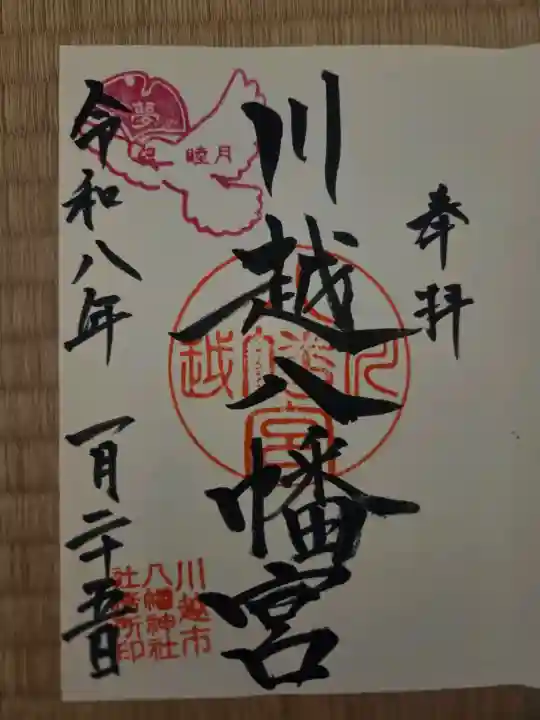 奉拝
川越八幡宮
令和八年 一月二十五日
夢
睦月
川越
八幡
宮
川越市
八幡神社
社務所印